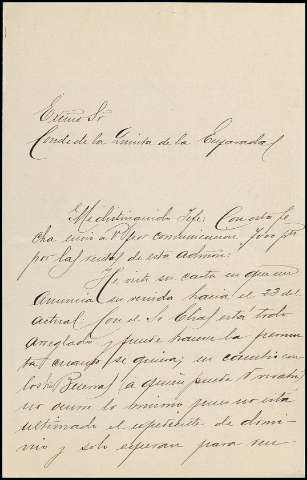 Excmo Sr
Conde de la Quinta de la Enjarada
Mi distinguido Jefe: Con esta fe
cha envio a V. por comunicacion pts
por las rentas de esta admón:
He visto su carta en que me
anuncia su venida hacia el 23 del
actual. Con el Sr Chas está todo
arreglado y puede hacerse la permu
ta cuando se quiera; en cambio con
los de Bueras (a quien puede V. recibir)
no ocurre lo mismo pues no está
ultimado el expediente de domi-
nio y solo esperan para